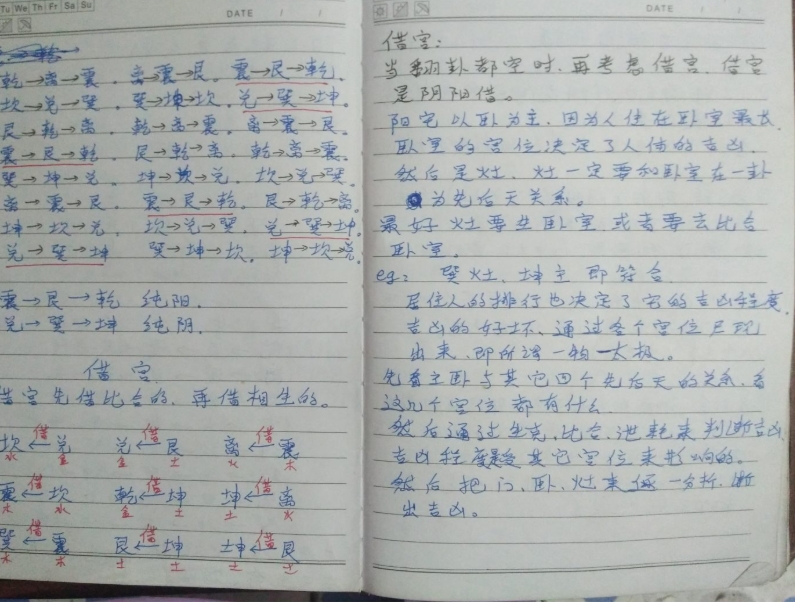 Tu We Th Fr Sa Su
DATE / /
乾→离→震. 离→震→艮. 震→艮→乾.
坎→兑→巽. 巽→坤→坎. 兑→巽→坤.
艮→乾→离. 乾→离→震. 离→震→艮.
震→艮→乾. 艮→乾→离. 乾→离→震.
巽→坤→兑. 坤→坎→兑. 坎→兑→巽.
离→震→艮. 震→艮→乾. 艮→乾→离.
坤→坎→兑. 坎→兑→巽. 兑→巽→坤.
兑→巽→坤 巽→坤→坎. 坤→坎→兑.
震→艮→乾 纯阳.
兑→巽→坤 纯阴.
借宫
借宫先借比合的.再借相生的。
坎←借兑 兑←借艮 离←借震
水 金 金 土 火 木
震←借坎 乾←借坤 坤←借离
木 水 金 土 土 火
巽←借震 艮←借坤 坤←借艮
木 木 土 土 土 土
DATE / /
借宫:
当翻卦都空时.再考虑借宫.借宫
是阴阳借。
阳宅以卧为主.因为人住在卧室最长.
卧室的宫位决定了人体的吉凶.
然后是灶.灶一定要和卧室在一卦
为先后天关系。
最好灶要生卧室.或者要去比合
卧室.
eg: 巽灶.坤主即符合.
居住人的排行也决定了宫的吉凶程度.
吉凶的好坏.通过各个宫位显现
出来.即所谓一物一太极。
先看主卧与其它四个先后天的关系.看
这几个宫位都有什么
然后通过生克.比合.泄耗来判断吉凶
吉凶程度是其它宫位来影响的。
然后把门、卧、灶来逐一分析.断
出吉凶。